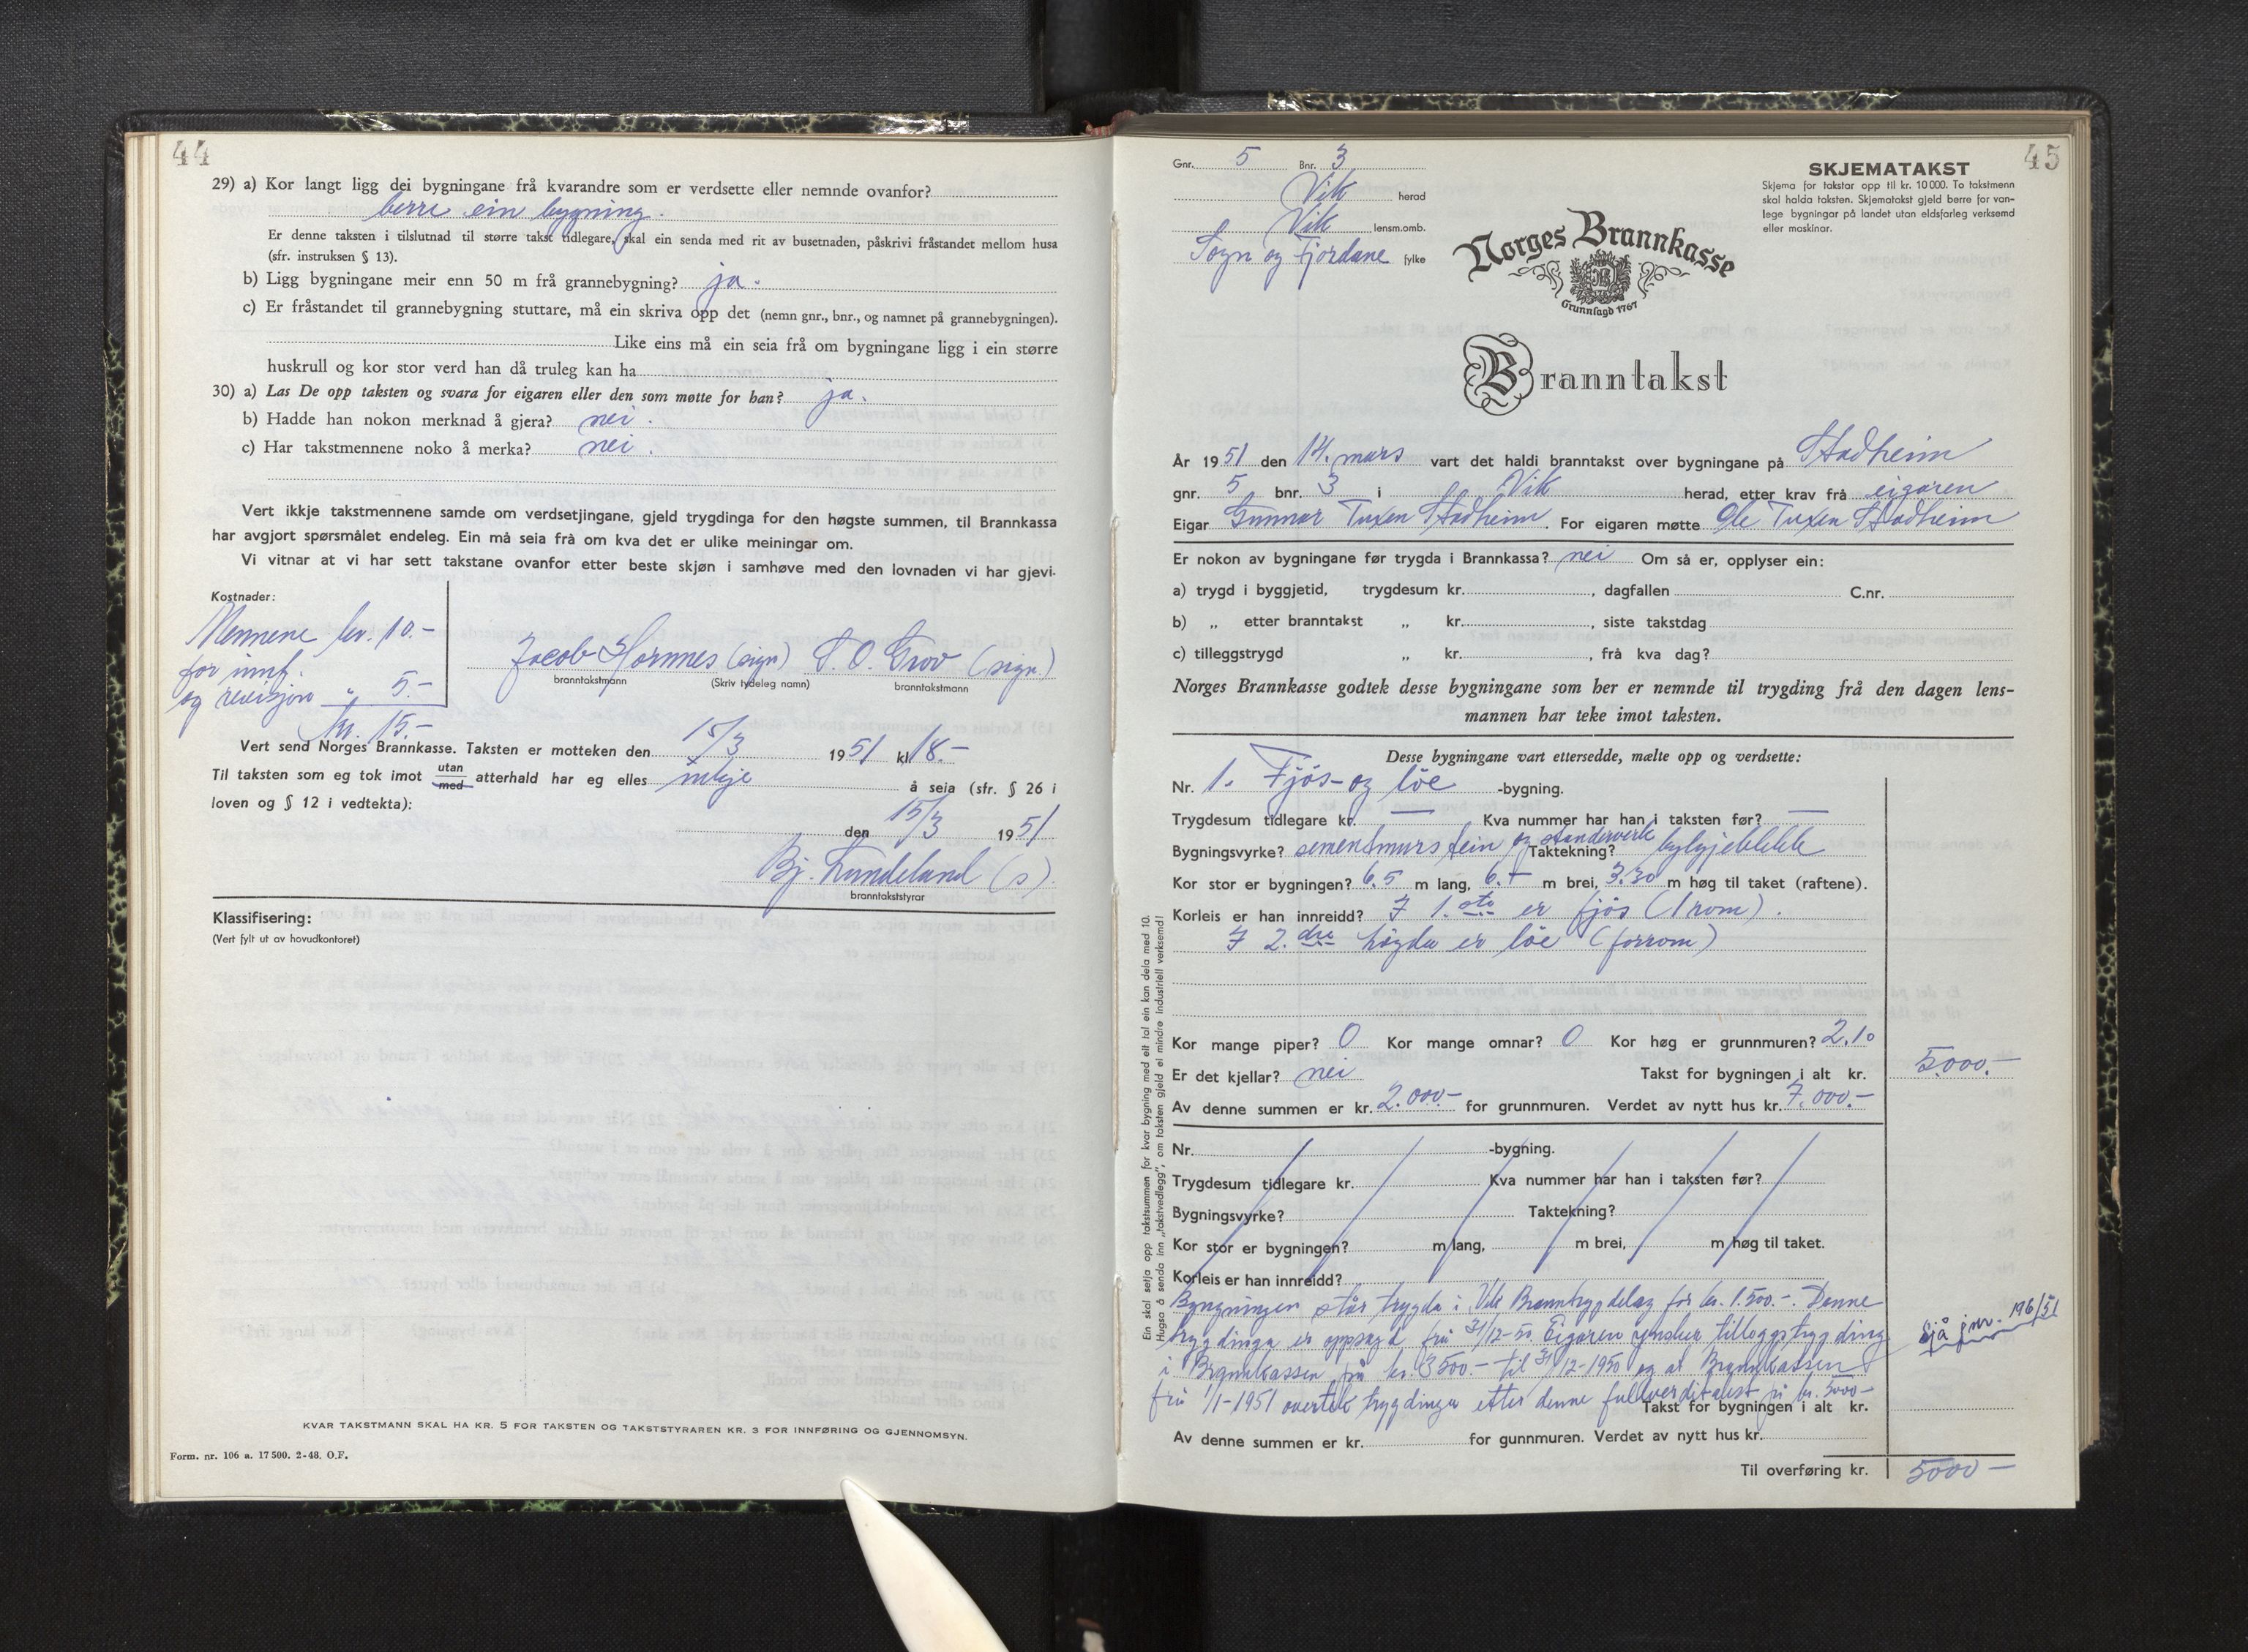 44
29) a) Kor langt ligg dei bygningane frå kvarandre som er verdsette eller nemnde ovanfor?
berre ein bygning.
Er denne taksten i tilslutnad til større takst tidlegare, skal ein senda med rit av busetnaden, påskrivi fråstandet mellom husa
(sfr. instruksen § 13).
b) Ligg bygningane meir enn 50 m frå grannebygning? ja.
c) Er fråstandet til grannebygning stuttare, må ein skriva opp det (nemn gnr., bnr., og namnet på grannebygningen).
Like eins må ein seia frå om bygningane ligg i ein større
huskrull og kor stor verd han då truleg kan ha
30) a) Las De opp taksten og svara for eigaren eller den som møtte for han? ja.
b) Hadde han nokon merknad å gjera? nei.
c) Har takstmennene noko å merka? nei.
Vert ikkje takstmennene samde om verdsetjingane, gjeld trygdinga for den høgste summen, til Brannkassa
har avgjort spørsmålet endeleg. Ein må seia frå om kva det er ulike meiningar om.
Vi vitnar at vi har sett takstane ovanfor etter beste skjøn i samhøve med den lovnaden vi har gjevi.
Kostnader:
Mennene kr. 10.-
for innf.
og revisjon " 5.-
kr. 15.-
Jacob Hornnes (sign) S. O. Grov (sign.)
branntakstmann (Skriv tydeleg namn) branntakstmann
Vert send Norges Brannkasse. Taksten er motteken den 15/3 1951 kl 18.-
Til taksten som eg tok imot utan med atterhald har eg elles inkje å seia (sfr. § 26 i
loven og § 12 i vedtekta):
den 15/3 1951
Bj. Lundeland (s).
branntakststyrar
Klassifisering:
(Vert fylt ut av hovudkontoret)
KVAR TAKSTMANN SKAL HA KR. 5 FOR TAKSTEN OG TAKSTSTYRAREN KR. 3 FOR INNFØRING OG GJENNOMSYN.
Form. nr. 106 a. 17 500. 2-48. O.F.
45
Gnr. 5 Bnr. 3
Vik herad
Vik lensm.omb.
Sogn og Fjordane fylke
SKJEMATAKST
Skjema for takstar opp til kr. 10 000. To takstmenn
skal halda taksten. Skjematakst gjeld berre for van-
lege bygningar på landet utan eldsfarleg verksemd
eller maskinar.
Norges Brannkasse
Grunnlagd 1767
Branntakst
År 1951 den 14. mars vart det haldi branntakst over bygningane på Stadheim
gnr. 5 bnr. 3 i Vik herad, etter krav frå eigaren
Eigar Gunnar Tuxen Stadheim. For eigaren møtte Ole Tuxen Stadheim
Er nokon av bygningane før trygda i Brannkassa? nei Om så er, opplyser ein:
a) trygd i byggjetid, trygdesum kr. , dagfallen C.nr.
b) „ etter branntakst „ kr. , siste takstdag
c) tilleggstrygd „ kr. , frå kva dag?
Norges Brannkasse godtek desse bygningane som her er nemnde til trygding frå den dagen lens-
mannen har teke imot taksten.
Desse bygningane vart ettersedde, mælte opp og verdsette:
Nr. 1. Fjös- og löe -bygning.
Trygdesum tidlegare kr. — Kva nummer har han i taksten før? —
Bygningsvyrke? sementmurstein og standerverk Taktekning? bylgjeblekk
Kor stor er bygningen? 6.5 m lang, 6.- m brei, 3.30 m høg til taket (raftene).
Korleis er han innreidd? I 1.ste er fjös (1 rom).
I 2.dre högda er löe (forrom)
Kor mange piper? 0 Kor mange omnar? 0 Kor høg er grunnmuren? 2.10
Er det kjellar? nei Takst for bygningen i alt kr. 5.000.-
Av denne summen er kr. 2.000.- for grunnmuren. Verdet av nytt hus kr. 7.000.-
Nr. -bygning.
Trygdesum tidlegare kr. Kva nummer har han i taksten før?
Bygningsvyrke? Taktekning?
Kor stor er bygningen? m lang, m brei, m høg til taket.
Korleis er han innreidd?
Bygningen står trygda i Vik Branntrygdelag for kr. 1.500.-. Denne
trygdinga er oppsagd frå 31/12-50. Eigaren ynskjer tilleggstrygding
i Brannkassen på kr. 3500.- til 31/12-1950 og at Brannkassen
frå 1/1-1951 overtek trygdinga etter denne fullverditakst på kr. 5000-
Sjå jnr. 196/51
Takst for bygningen i alt kr.
Av denne summen er kr. for gunnmuren. Verdet av nytt hus kr.
Til overføring kr. 5000-
Ein skal setja opp takstsummen for kvar bygning med eit tal ein kan dela med 10.
Hugsa å senda inn „takstvedlegg", om taksten gjeld ei mindre industriell verksemd!